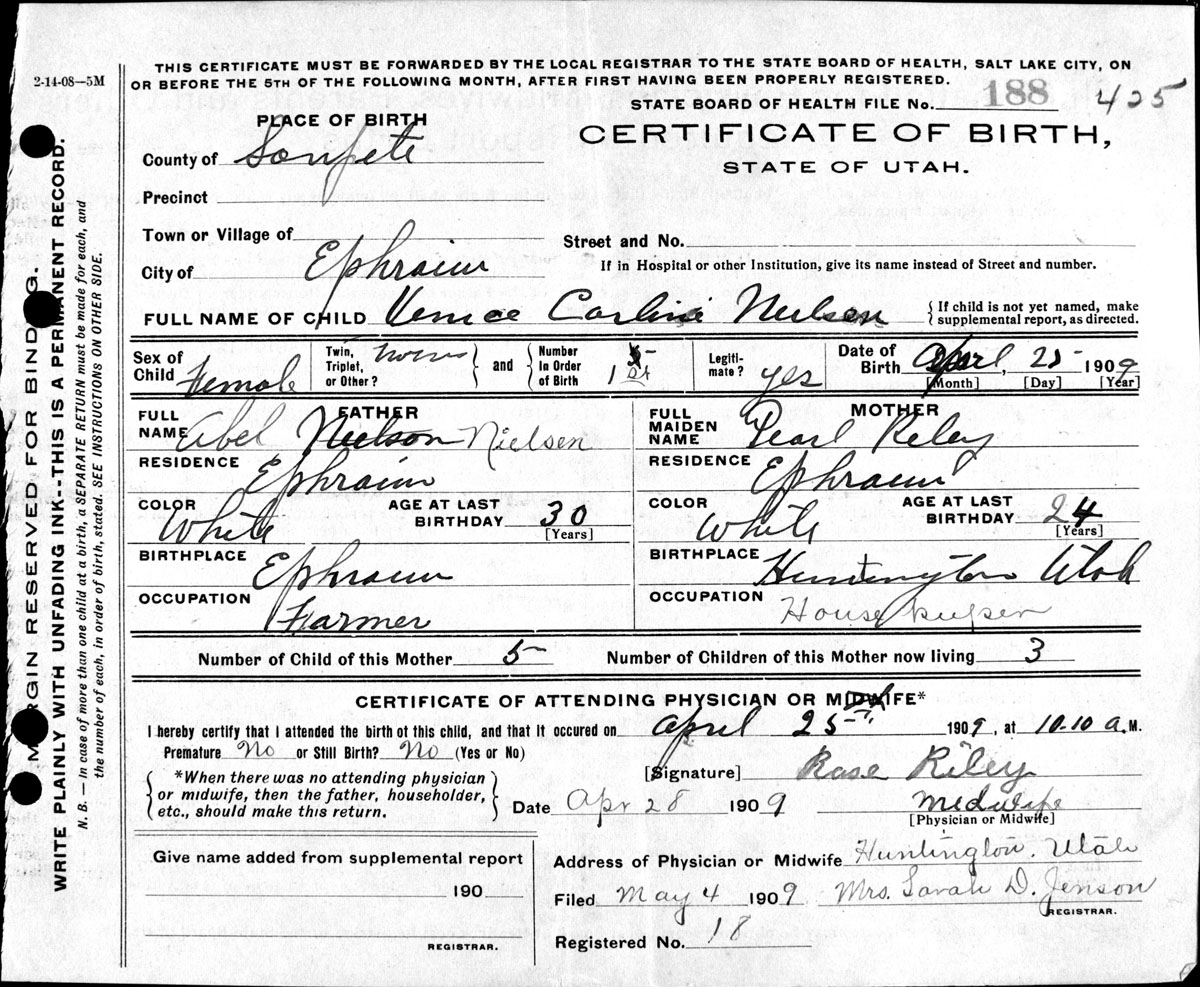 2-14-08—5M
THIS CERTIFICATE MUST BE FORWARDED BY THE LOCAL REGISTRAR TO THE STATE BOARD OF HEALTH, SALT LAKE CITY, ON
OR BEFORE THE 5TH OF THE FOLLOWING MONTH, AFTER FIRST HAVING BEEN PROPERLY REGISTERED.
STATE BOARD OF HEALTH FILE No. 188 425
PLACE OF BIRTH
CERTIFICATE OF BIRTH,
STATE OF UTAH.
County of Sanpete
Precinct
Town or Village of
Street and No.
City of Ephraim
If in Hospital or other Institution, give its name instead of Street and number.
FULL NAME OF CHILD Carline Neilsen
{If child is not yet named, make
supplemental report, as directed.
Sex of Child Female
Twin, Triplet, or Other? Twins } and { Number In Order of Birth 1st
Legiti-mate? yes
Date of Birth April, 25 1909
[Month] [Day] [Year]
FATHER
FULL NAME Abel Nielsen
RESIDENCE Ephraim
COLOR White AGE AT LAST BIRTHDAY 30
[Years]
BIRTHPLACE Ephraim
OCCUPATION Farmer
MOTHER
FULL MAIDEN NAME Pearl Riley
RESIDENCE Ephraim
COLOR White AGE AT LAST BIRTHDAY 24
[Years]
BIRTHPLACE Huntington Utah
OCCUPATION House keeper
Number of Child of this Mother 5 Number of Children of this Mother now living 3
CERTIFICATE OF ATTENDING PHYSICIAN OR MIDWIFE*
I hereby certify that I attended the birth of this child, and that it occured on April 25th 1909, at 10.10 a.M.
Premature No or Still Birth? No (Yes or No)
{ *When there was no attending physician
or midwife, then the father, householder,
etc., should make this return. }
[Signature] Rose Riley
Date Apr 28 1909 Midwife
[Physician or Midwife]
Give name added from supplemental report
190
REGISTRAR.
Address of Physician or Midwife Huntington, Utah
Filed May 4 1909 Mrs. Sarah D. Jenson
REGISTRAR.
Registered No. 18
MARGIN RESERVED FOR BINDING.
WRITE PLAINLY WITH UNFADING INK--THIS IS A PERMANENT RECORD.
N. B. — In case of more than one child at a birth, a SEPARATE RETURN must be made for each, and
the number of each, in order of birth, stated. SEE INSTRUCTIONS ON OTHER SIDE.